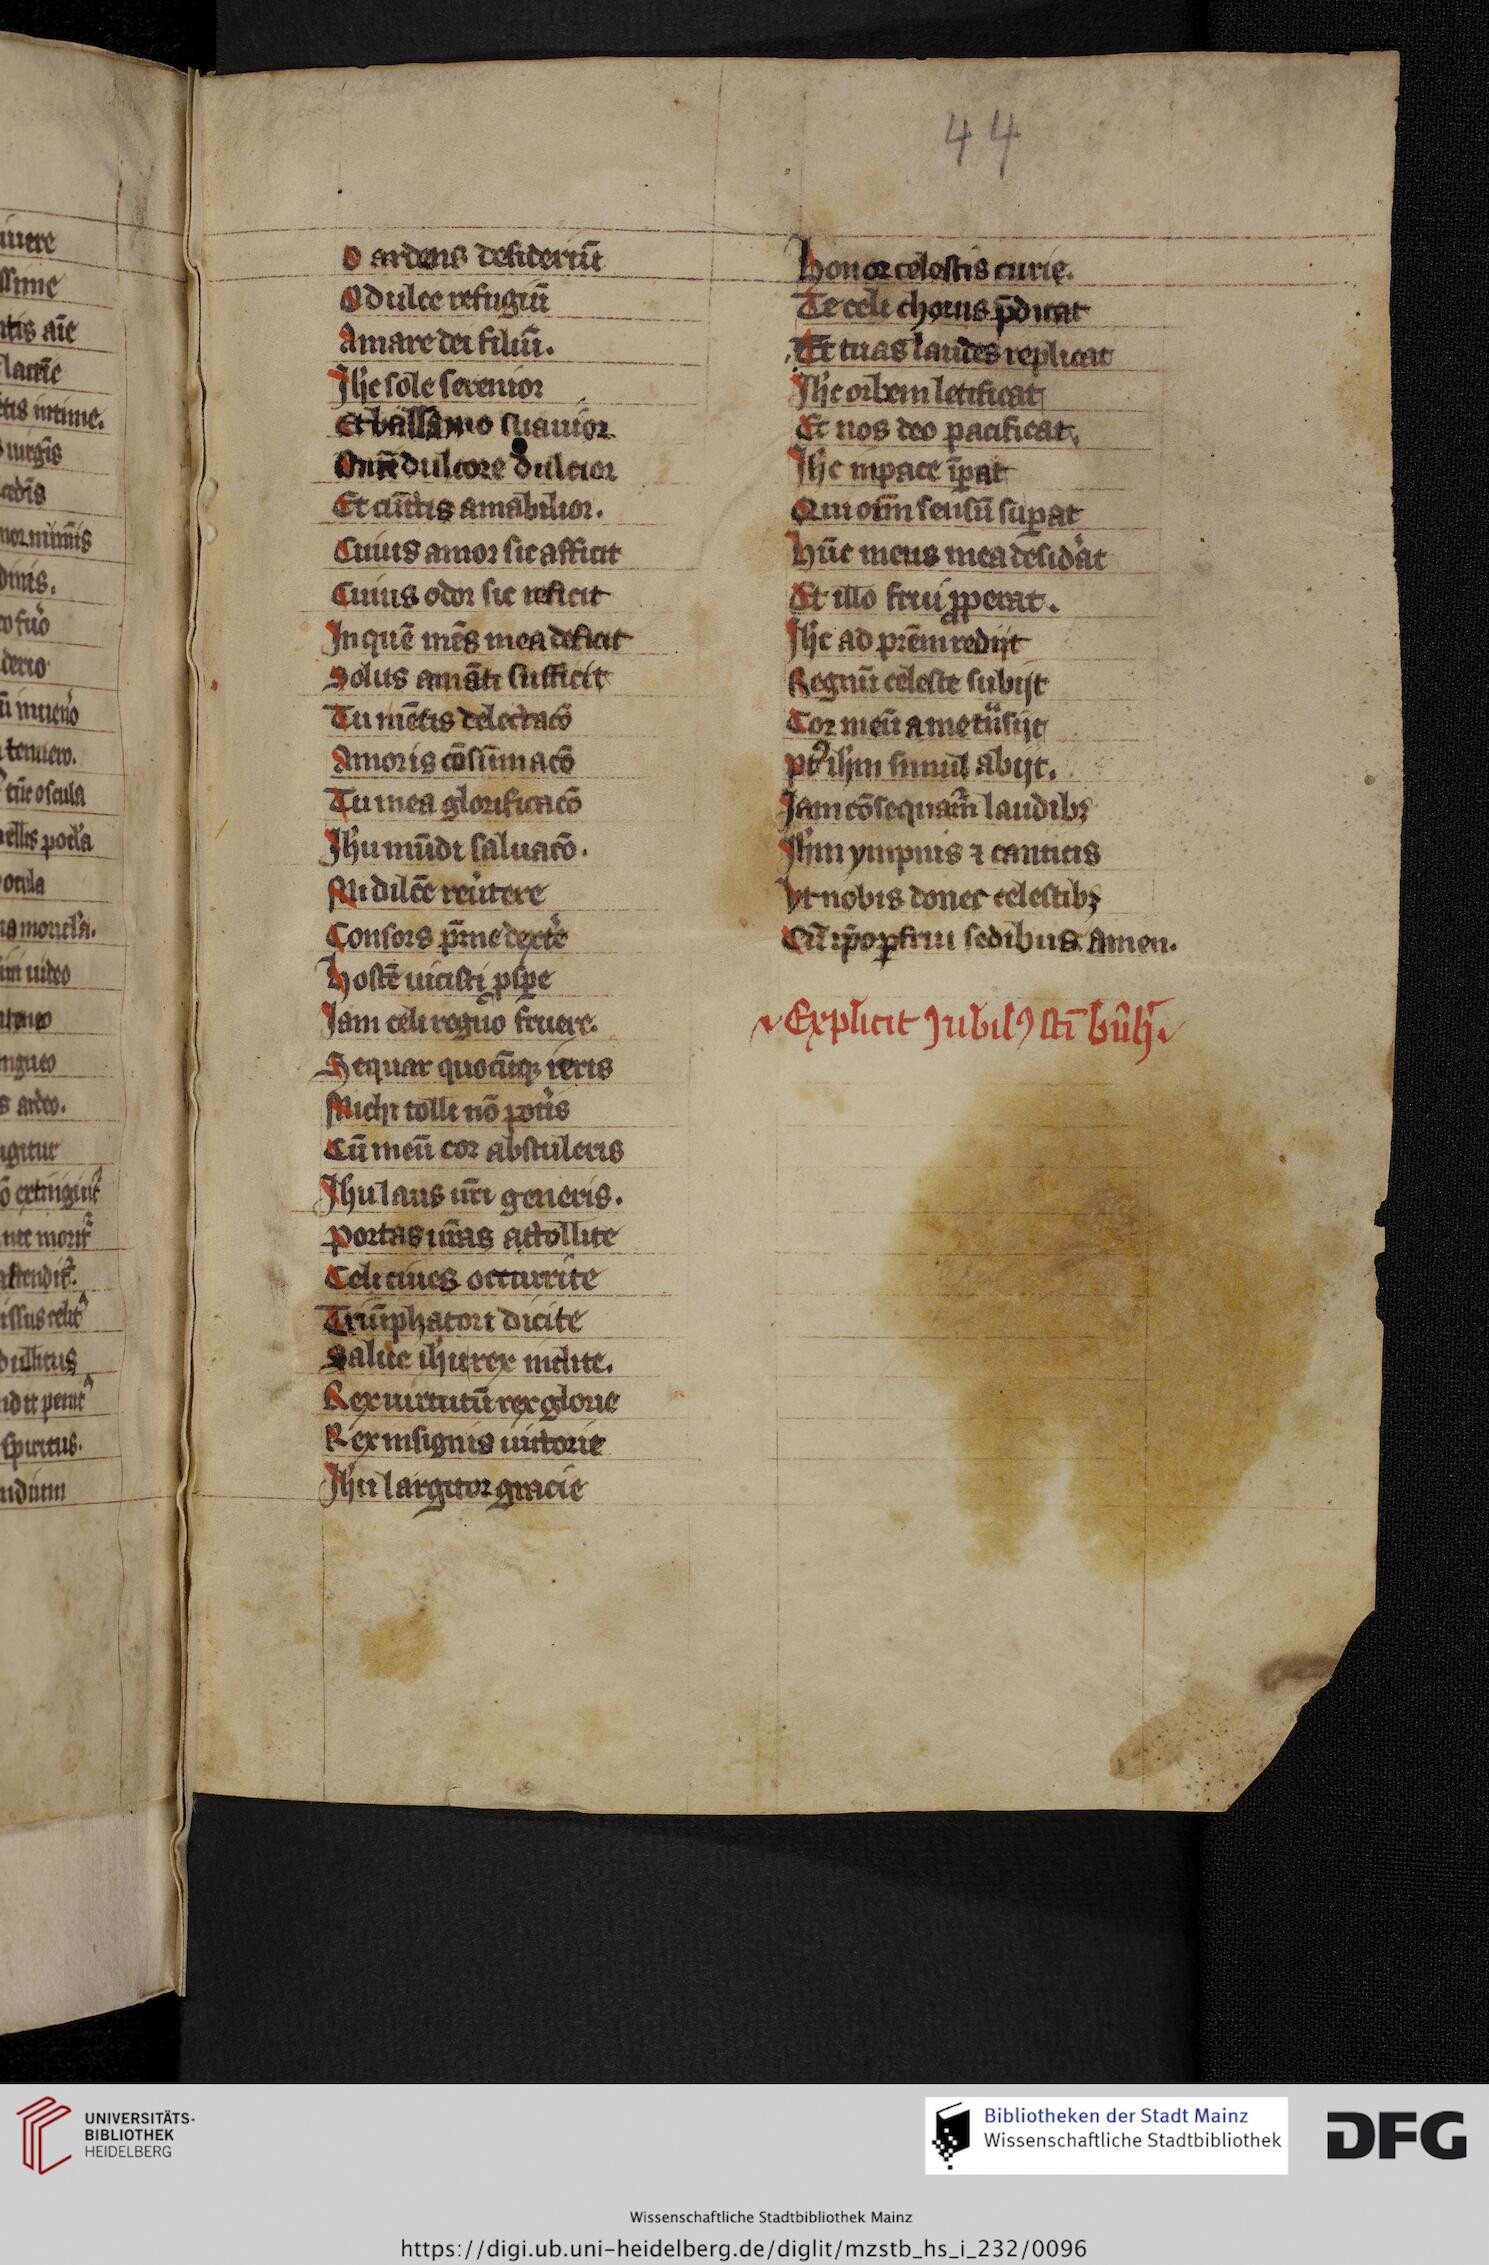 44
iuere
ssime
ntis aīe
uirgīs
dinis.
tenuero.
ocula
uideo
ngueo
s ardeo.
nec morit᷑
spiritus.
udium
O ardens desideriū
O dulce refugiū
Amare dei filiū.
Ihc sole serenior
Et balsamo suauior
Omī dulcore dulcior
Et cūctis amabilior.
Cuius amor sic afficit
Cuius odor sic reficit
In quē mēs mea deficit
Solus amāti sufficit
Tu mētis delectacō
Amoris cōsūmacō
Tu mea glorificacō
Ihu mūdi saluacō.
Mi dilcē reu᷑tere
Consors pr̄ne dext᷑e
Hostē uicisti ꝓspe
Iam celi regno fruere.
Sequar quocūqꝫ ieris
Michi tolli nō pot᷑is
Cū meū cor abstuleris
Ihu laus nr̄i generis.
Portas ur̄as attollite
Celi ciues occurite
Triūphatori dicite
Salue ihu rex inclite.
Rex uirtutū rex glorie
Rex insignis uictorie
Ihu largitor gracie
Honor celestis curie.
Te celi chorus p̄dicat
Et tuas laudes replicat
Ihc orbem letificat
Et nos deo pacificat.
Ihc in pace īperat
Qui om̄m sensū suꝑat
Hūc mens mea desid᷑at
Et illo frui ꝓperat.
Ihc ad pr̄em redijt
Regnū celeste subijt
Cor meū a me tͣnsijt
Pꝰt ihm simul abijt.
Iam cōsequam᷑ laudibꝫ
Ihm ympnis ⁊ canticis
Vt nobis donet celestibꝫ
Cū ip̄o ꝑfrui sedibus. Amen.
Explicit Jubilꝰ sc̄i bn̄h᷑.
UNIVERSITÄTS-
BIBLIOTHEK
HEIDELBERG
Bibliotheken der Stadt Mainz
Wissenschaftliche Stadtbibliothek
DFG
Wissenschaftliche Stadtbibliothek Mainz
https://digi.ub.uni-heidelberg.de/diglit/mzstb_hs_i_232/0096